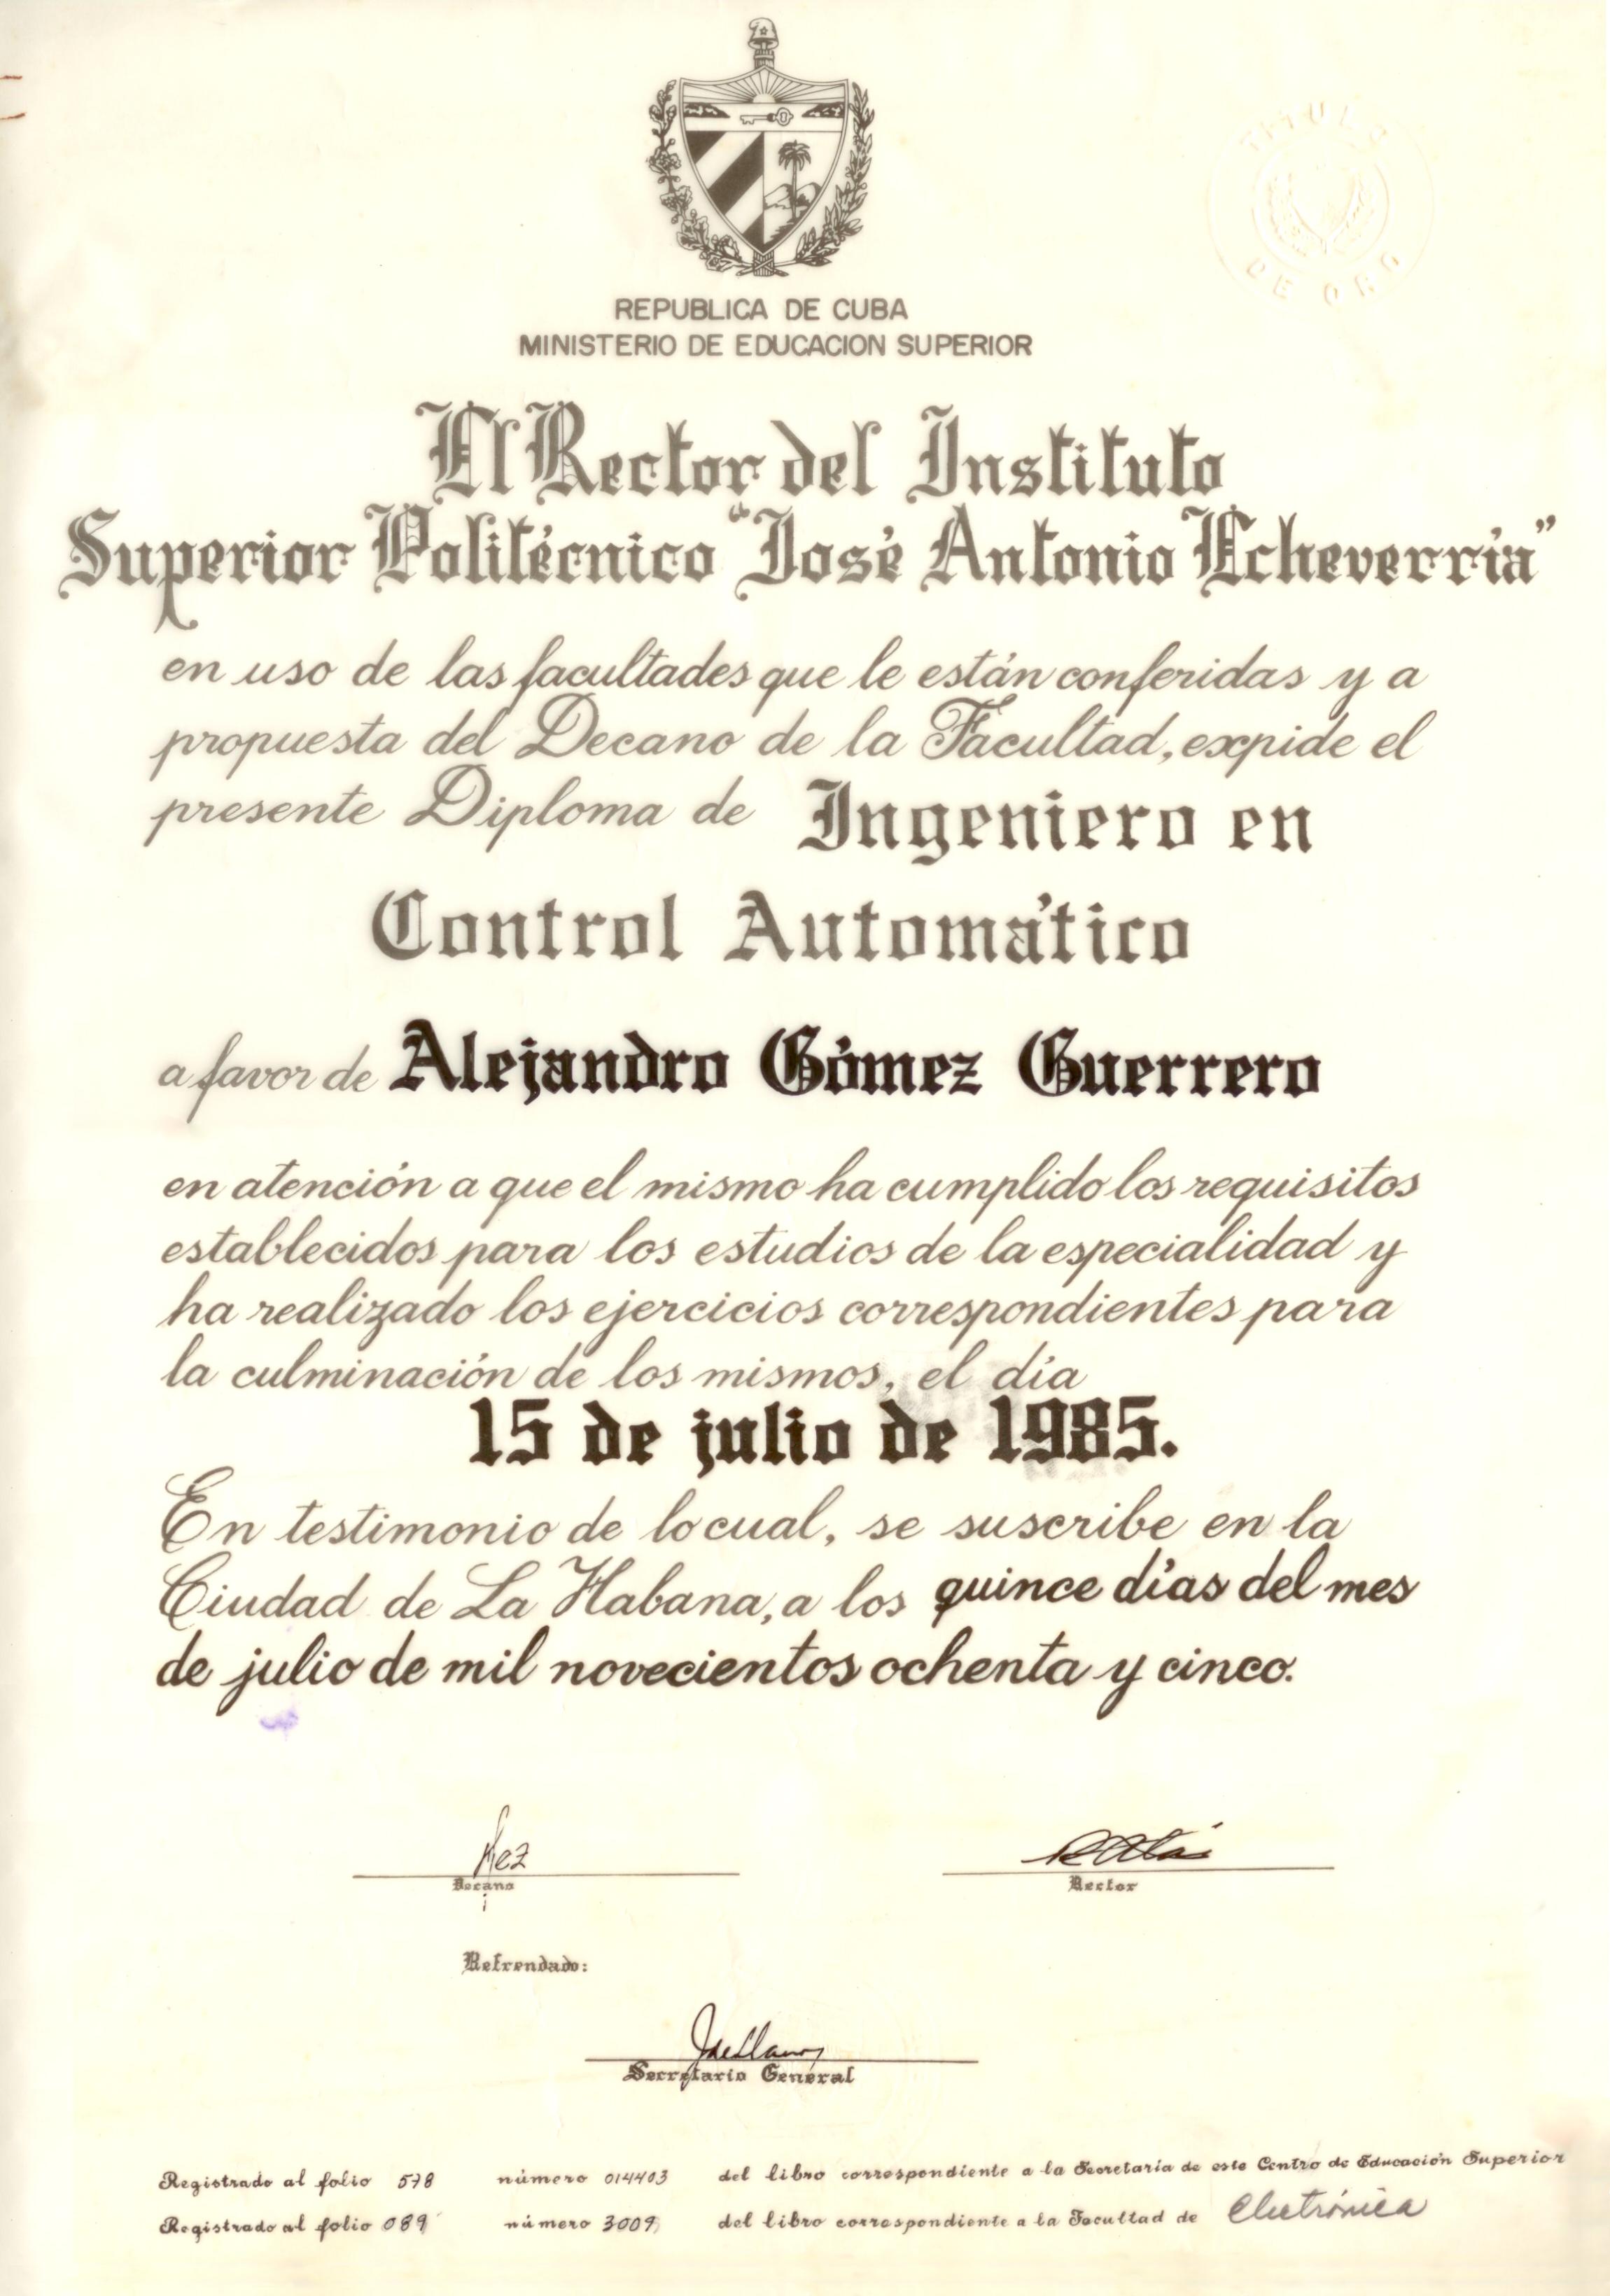 TITULO DE ORO
REPUBLICA DE CUBA
MINISTERIO DE EDUCACION SUPERIOR
El Rector del Instituto
Superior Politécnico "José Antonio Echeverría"
en uso de las facultades que le están conferidas y a
propuesta del Decano de la Facultad, expide el
presente Diploma de Ingeniero en
Control Automático
a favor de Alejandro Gómez Guerrero
en atención a que el mismo ha cumplido los requisitos
establecidos para los estudios de la especialidad y
ha realizado los ejercicios correspondientes para
la culminación de los mismos, el día
15 de julio de 1985.
En testimonio de lo cual, se suscribe en la
Ciudad de La Habana, a los quince días del mes
de julio de mil novecientos ochenta y cinco.
Decano
Rector
Refrendado:
Secretario General
Registrado al folio 578 número 014403 del libro correspondiente a la Secretaría de este Centro de Educación Superior
Registrado al folio 089 número 3009 del libro correspondiente a la Facultad de Electrónica